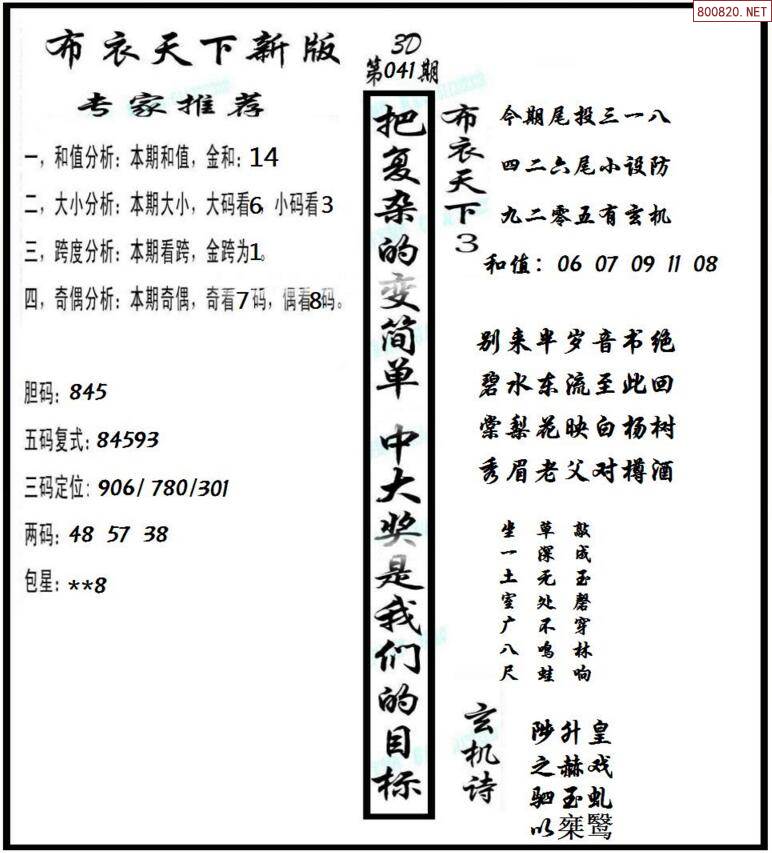 800820.NET
布衣天下新版
专家推荐
一，和值分析：本期和值，金和：14
二，大小分析：本期大小，大码看6，小码看3
三，跨度分析：本期看跨，金跨为1。
四，奇偶分析：本期奇偶，奇看7码，偶看8码。
胆码：845
五码复式：84593
三码定位：906/780/301
两码：48 57 38
包星：**8
3D
第041期
把复杂的变简单 中大奖是我们的目标
布衣天下3
今期尾投三一八
四二六尾小设防
九二零五有玄机
和值：06 07 09 11 08
别来半岁音书绝
碧水东流至此回
棠梨花映白杨树
秀眉老父对樽酒
敲成玉磬穿林响
草深无处不鸣蛙
坐一土室广八尺
玄机诗
陟升皇
之赫戏
驷玉虬
以椉鹥